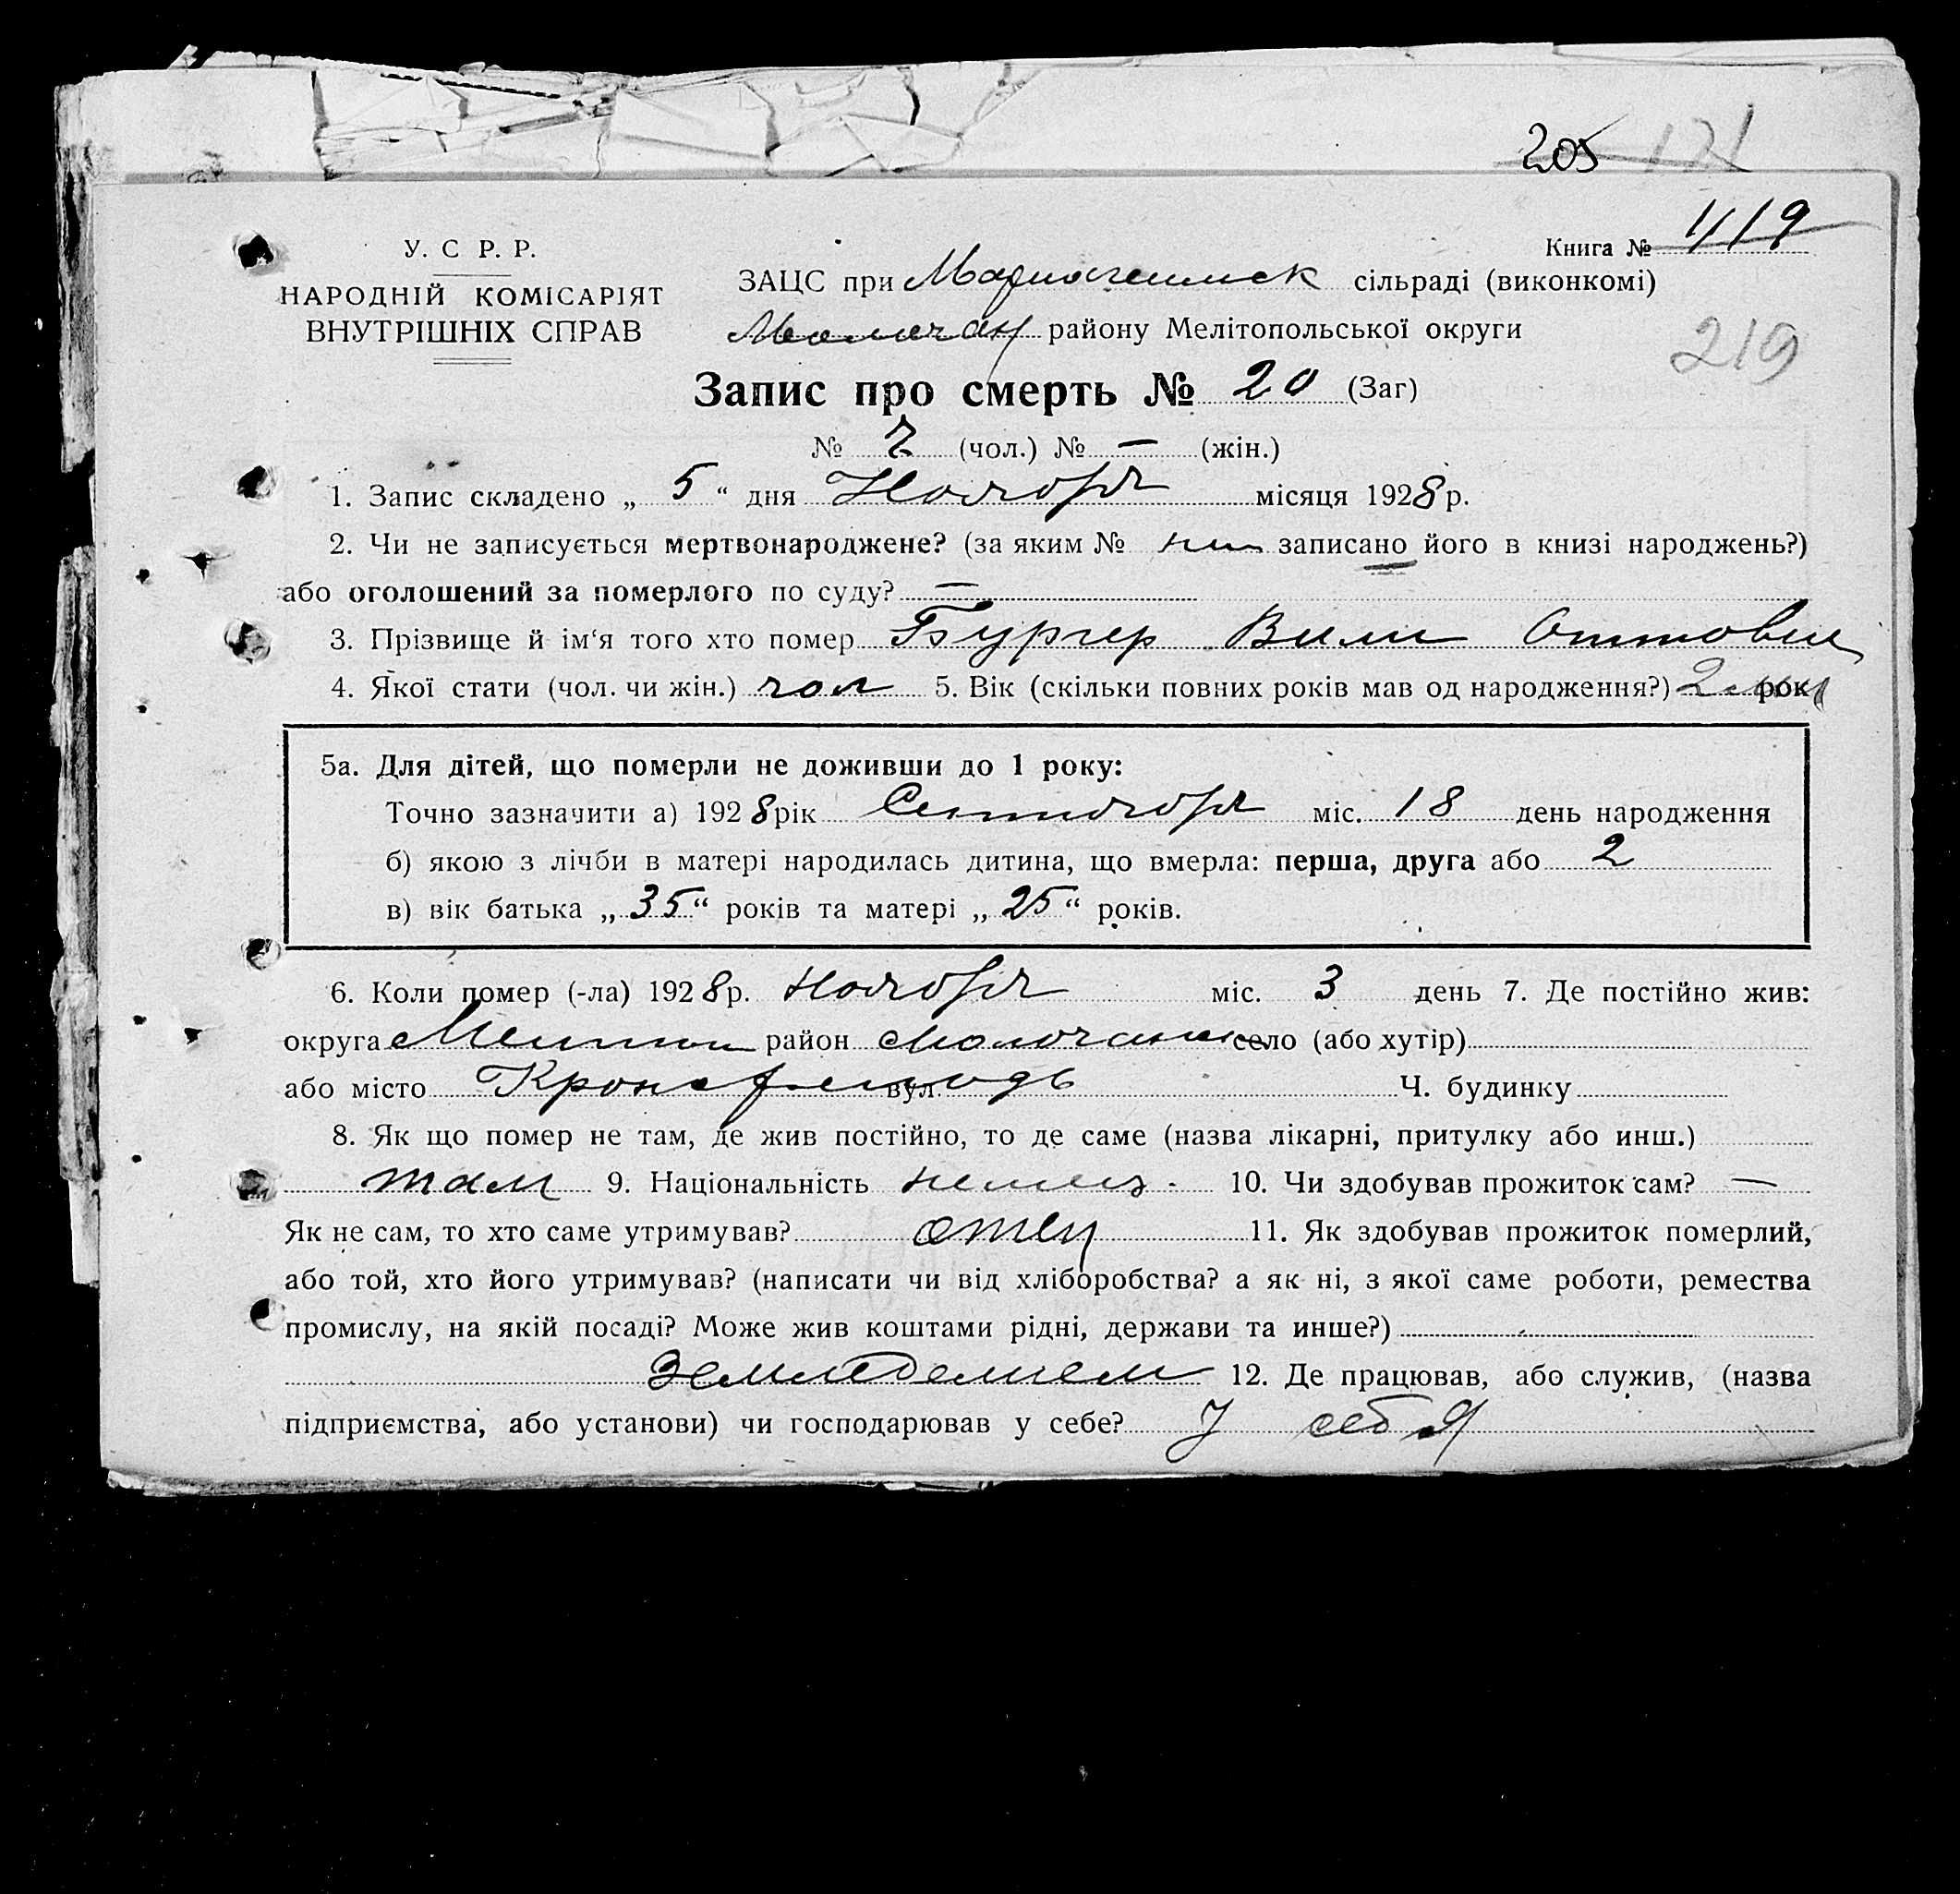 205 171
У. С Р. Р.
НАРОДНІЙ КОМІСАРІЯТ
ВНУТРІШНІХ СПРАВ
Книга № 119
ЗАЦС при сільраді (виконкомі)
Молочан району Мелітопольської округи
219
Запис про смерть № 20 (Заг)
№ (чол.) № — (жін.)
1. Запис складено „ 5 “ дня Ноября місяця 1928 р.
2. Чи не записується мертвонароджене? (за яким № записано його в книзі народжень?)
або оголошений за померлого по суду? —
3. Прізвище й ім‘я того хто помер Бургер Вили Оттович
4. Якої стати (чол. чи жін.) чол 5. Вік (скільки повних років мав од народження?) 2 рок
5а. Для дітей, що померли не доживши до 1 року:
Точно зазначити а) 1928 рік Сентября міс. 18 день народження
б) якою з лічби в матері народилась дитина, що вмерла: перша, друга або 2
в) вік батька „ 35 “ років та матері „ 25 “ років.
6. Коли помер (-ла) 1928 р. Ноября міс. 3 день 7. Де постійно жив:
округа Мелитоп район Молочанск село (або хутір)
або місто вул. Ч. будинку
8. Як що помер не там, де жив постійно, то де саме (назва лікарні, притулку або инш.)
там 9. Національність немец. 10. Чи здобував прожиток сам? —
Як не сам, то хто саме утримував? отец 11. Як здобував прожиток померлий,
або той, хто його утримував? (написати чи від хліборобства? а як ні, з якої саме роботи, ремества
промислу, на якій посаді? Може жив коштами рідні, держави та инше?)
Земледелием 12. Де працював, або служив, (назва
підприємства, або установи) чи господарював у себе? У себя